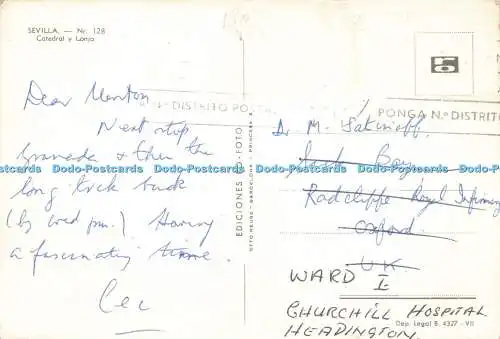 SEVILLA. — Nr. 128
Catedral y Lonja
Dear Menton
Next stop
Granada & then the
long trek back
(by wed pm.). Having
a fascinating time.
Cec
N.º DISTRITO POSTAL
PONGA N.º DISTRITO
EDICIONES FOTO
Dr M.
Radcliffe Royal Infirmary
Oxford
U K
WARD I
CHURCHILL HOSPITAL
HEADINGTON.
Dep. Legal B. 4327 - VII
Dodo-Postcards Dodo-Postcards Dodo-Postcards Dodo-Postcards Dodo-Postcards Dodo-Postcards